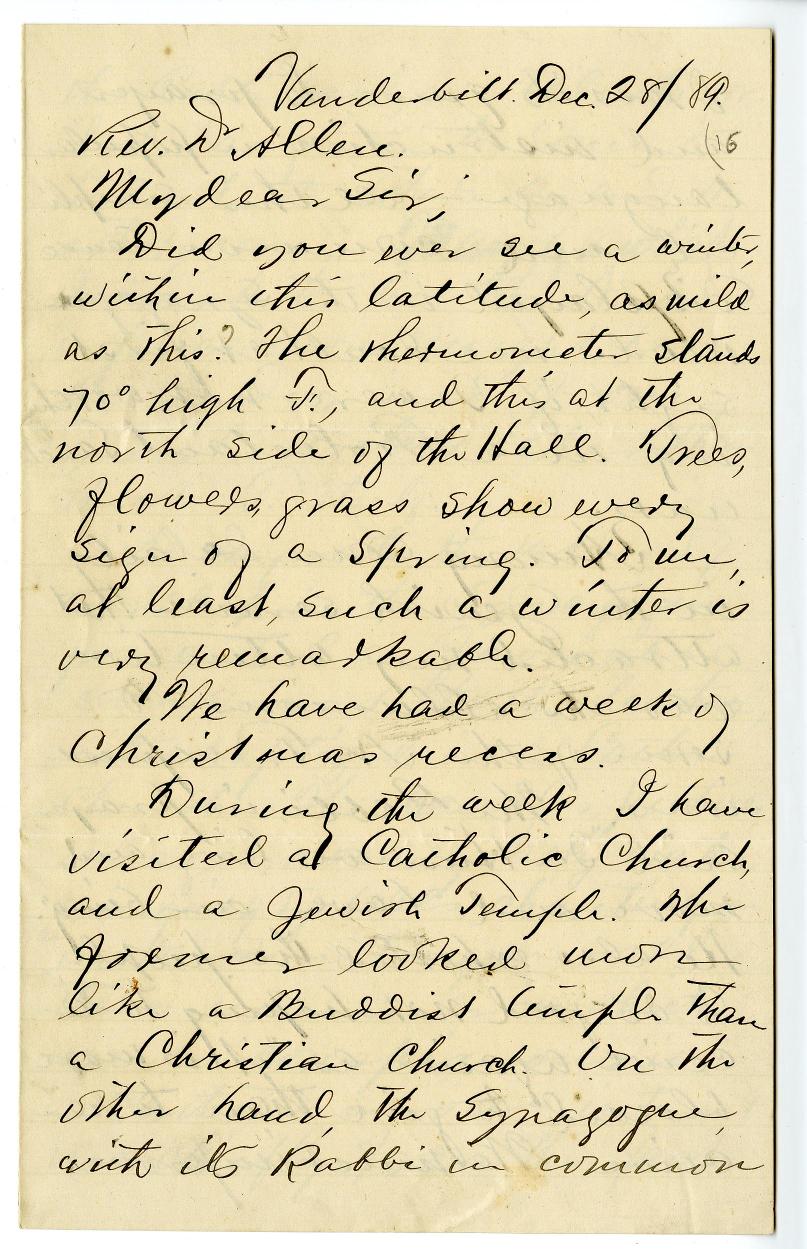 Vanderbilt. Dec. 28/89.
(16
Rev. Dr Allen.
My dear Sir,
Did you ever see a winter,
within this latitude, as mild
as this? The thermometer stands
70° high F., and this at the
north side of the Hall. Trees,
flowers, grass show every
sign of a Spring. To me,
at least, such a winter is
very remarkable.
We have had a week of
Christmas recess.
During the week I have
visited a Catholic Church,
and a Jewish Temple. The
former looked more
like a Buddist temple than
a Christian Church. On the
other hand, the Synagogue,
with its Rabbi in common